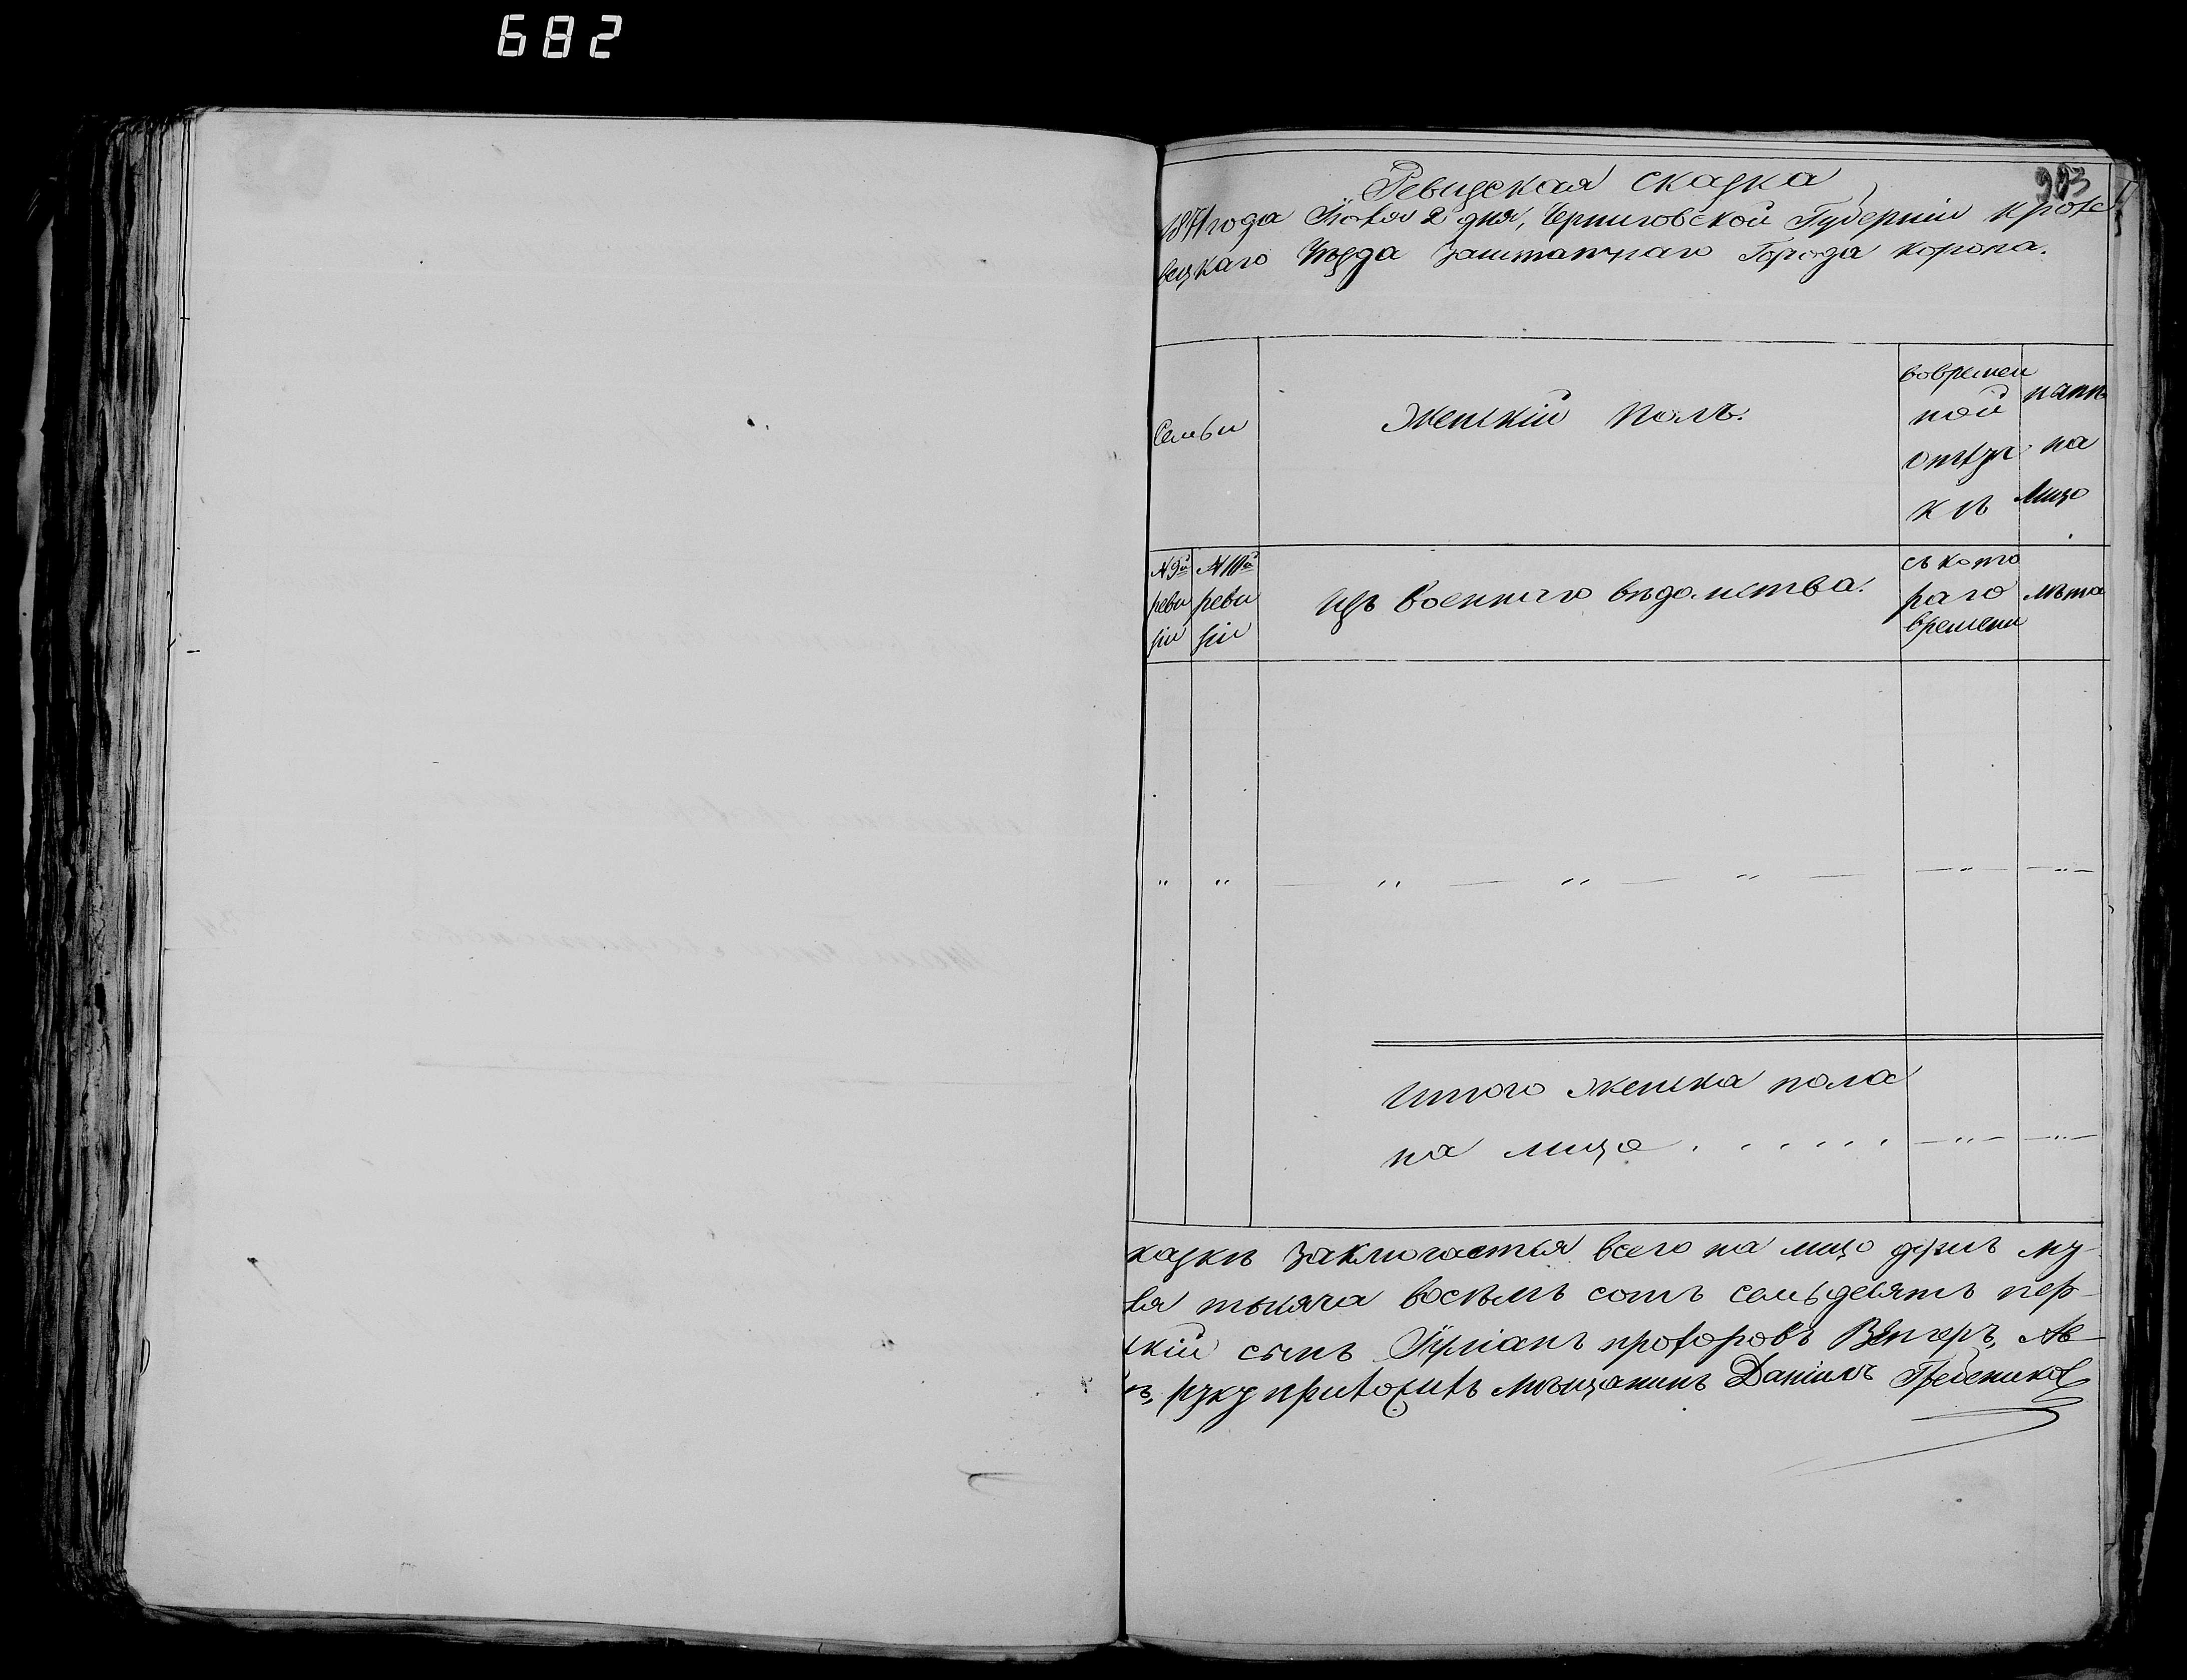 682
903
Ревизская сказка
1871 года Іюля 2 дня, Черниговской Губерніи кроле
вецкаго Уѣзда Заштатнаго Города коропа.
Семьи
Женскій Полъ.
вовремен
ной
отлуч
кѣ
нали
на
Лицо
N 9й
реви
зіи
N 10й
реви
зіи
Изъ Военнаго вѣдомства.
съ кото
раго
времени
лѣта
" " — " — " — " — —"— —"—
Итого женска пола
на лицо . . . . . . —"— —"—
казкѣ заключается всего на лицо душъ му-
ля тысяча восѣмъ сотъ семьдесятъ пер-
скій сынъ проѳоровъ Венгеръ,
ъ, руку приложилъ мѣщанинъ Даніилъ Гребеников